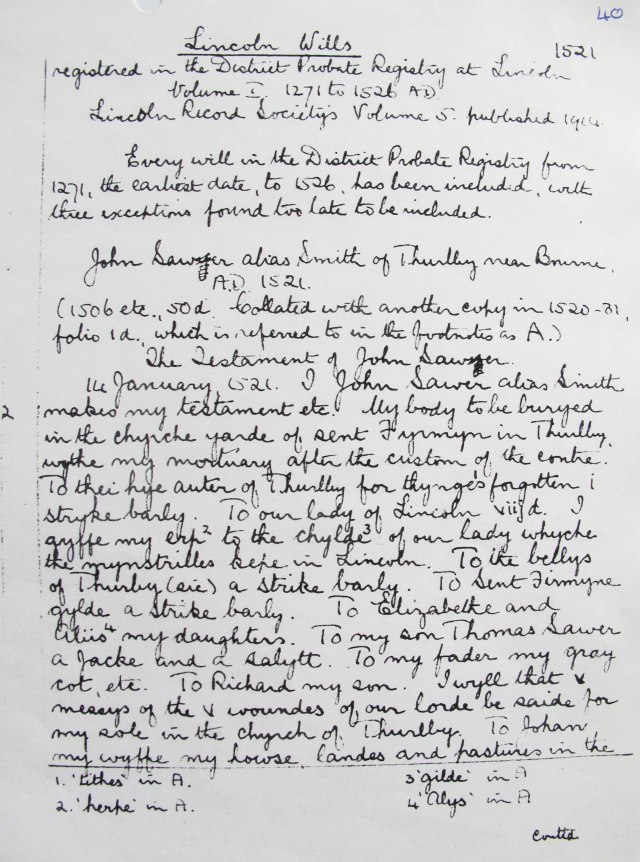 40
Lincoln Wills
1521
registered in the District Probate Registry at Lincoln
Volume I. 1271 to 1526 AD.
Lincoln Record Society's Volume 5. published 1914.
Every will in the District Probate Registry from
1271, the earliest date, to 1526, has been included, with
three exceptions found too late to be included.
John Sawyer alias Smith of Thurlby near Bourne.
A.D. 1521.
(1506 etc., 50d. Collated with another copy in 1520-31,
folio 1d., which is referred to in the footnotes as A.)
The Testament of John Sawyer.
14 January, 1521. I John Sawer alias Smith
2 makes my testament etc. My body to be buryed
in the chyrche yarde of sent Fyrmyn in Thurlby,
wythe my mortuary after the custom of the contre.
To thei hye auter of Thurlby for thynges forgotten i
stryke barly. To our lady of Lincoln viijd. I
gyffe my erp² to the chylde³ of our lady whyche
the mynstrilles kepe in Lincoln. To the bellys
of Thurlby (sic) a strike barly. To Sent Firmyne
gylde a strike barly. To Elizabethe and
Aliis⁴ my daughters. To my son Thomas Sawer
a Jacke and a salytt. To my fader my gray
cot, etc. To Richard my son. I wyll that v
messys of the v woundes of our lorde be saide for
my sole in the chyrch of Thurlby. To Johan
my wyffe my howse, landes and pastures in the
1. 'tithes' in A.
3 'gilde' in A
2. 'herpe' in A.
4 'Alys' in A
contd